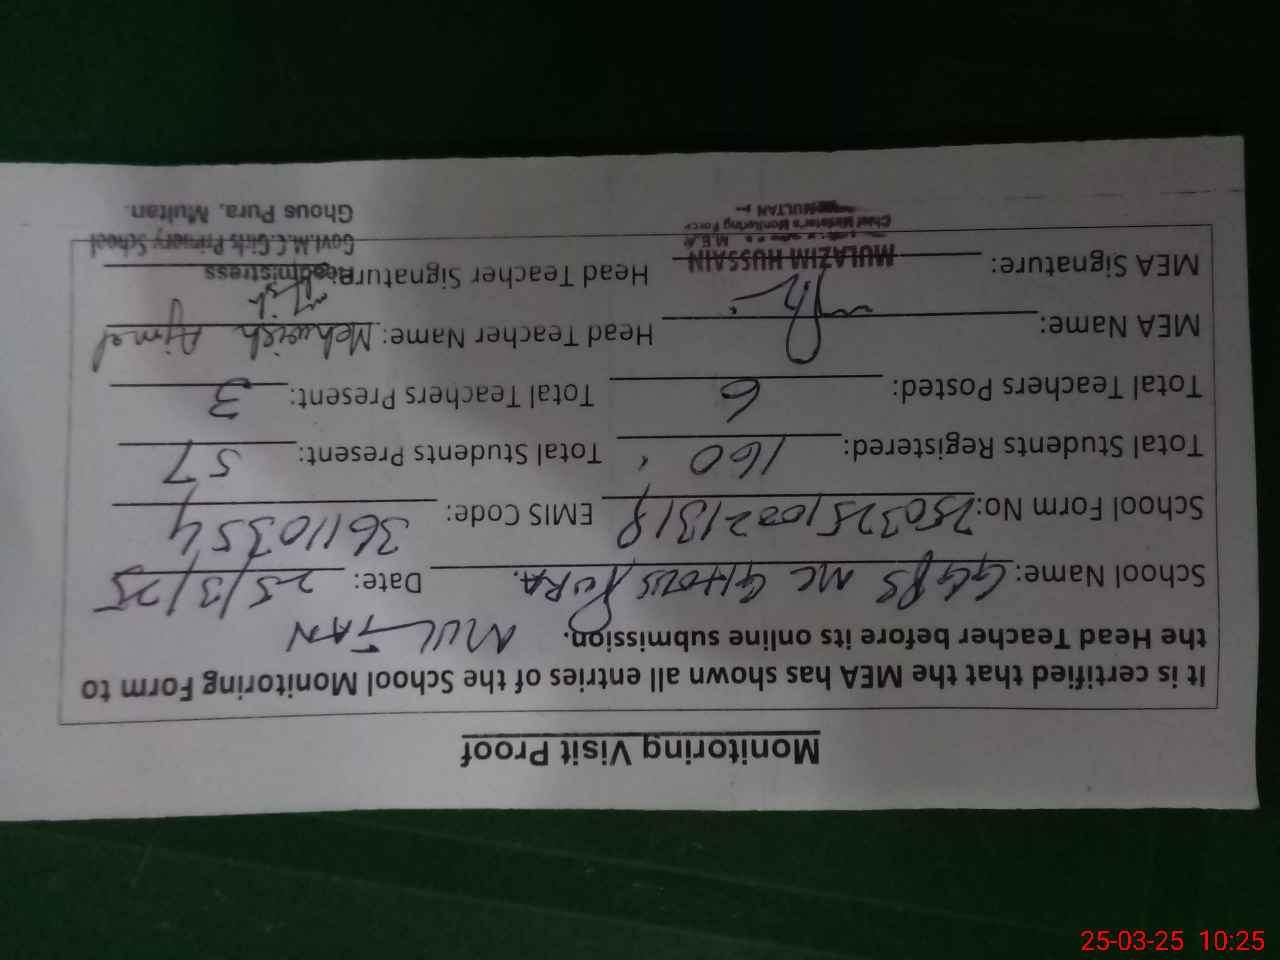 Monitoring Visit Proof
It is certified that the MEA has shown all entries of the School Monitoring Form to
the Head Teacher before its online submission. MULTAN
School Name: GGPS MC GHOUS PURA. Date: 25/3/25
School Form No: EMIS Code: 36110354
Total Students Registered: 160 Total Students Present: 57
Total Teachers Posted: 6 Total Teachers Present: 3
MEA Name: Head Teacher Name: Mehwish Ajmal
MEA Signature: Head Teacher Signature:
MULAZIM HUSSAIN Headmistress
M.E.A Govt.M.C.Girls Primary School
Chief Minister's Monitoring Force
MULTAN Ghous Pura, Multan.
25-03-25 10:25